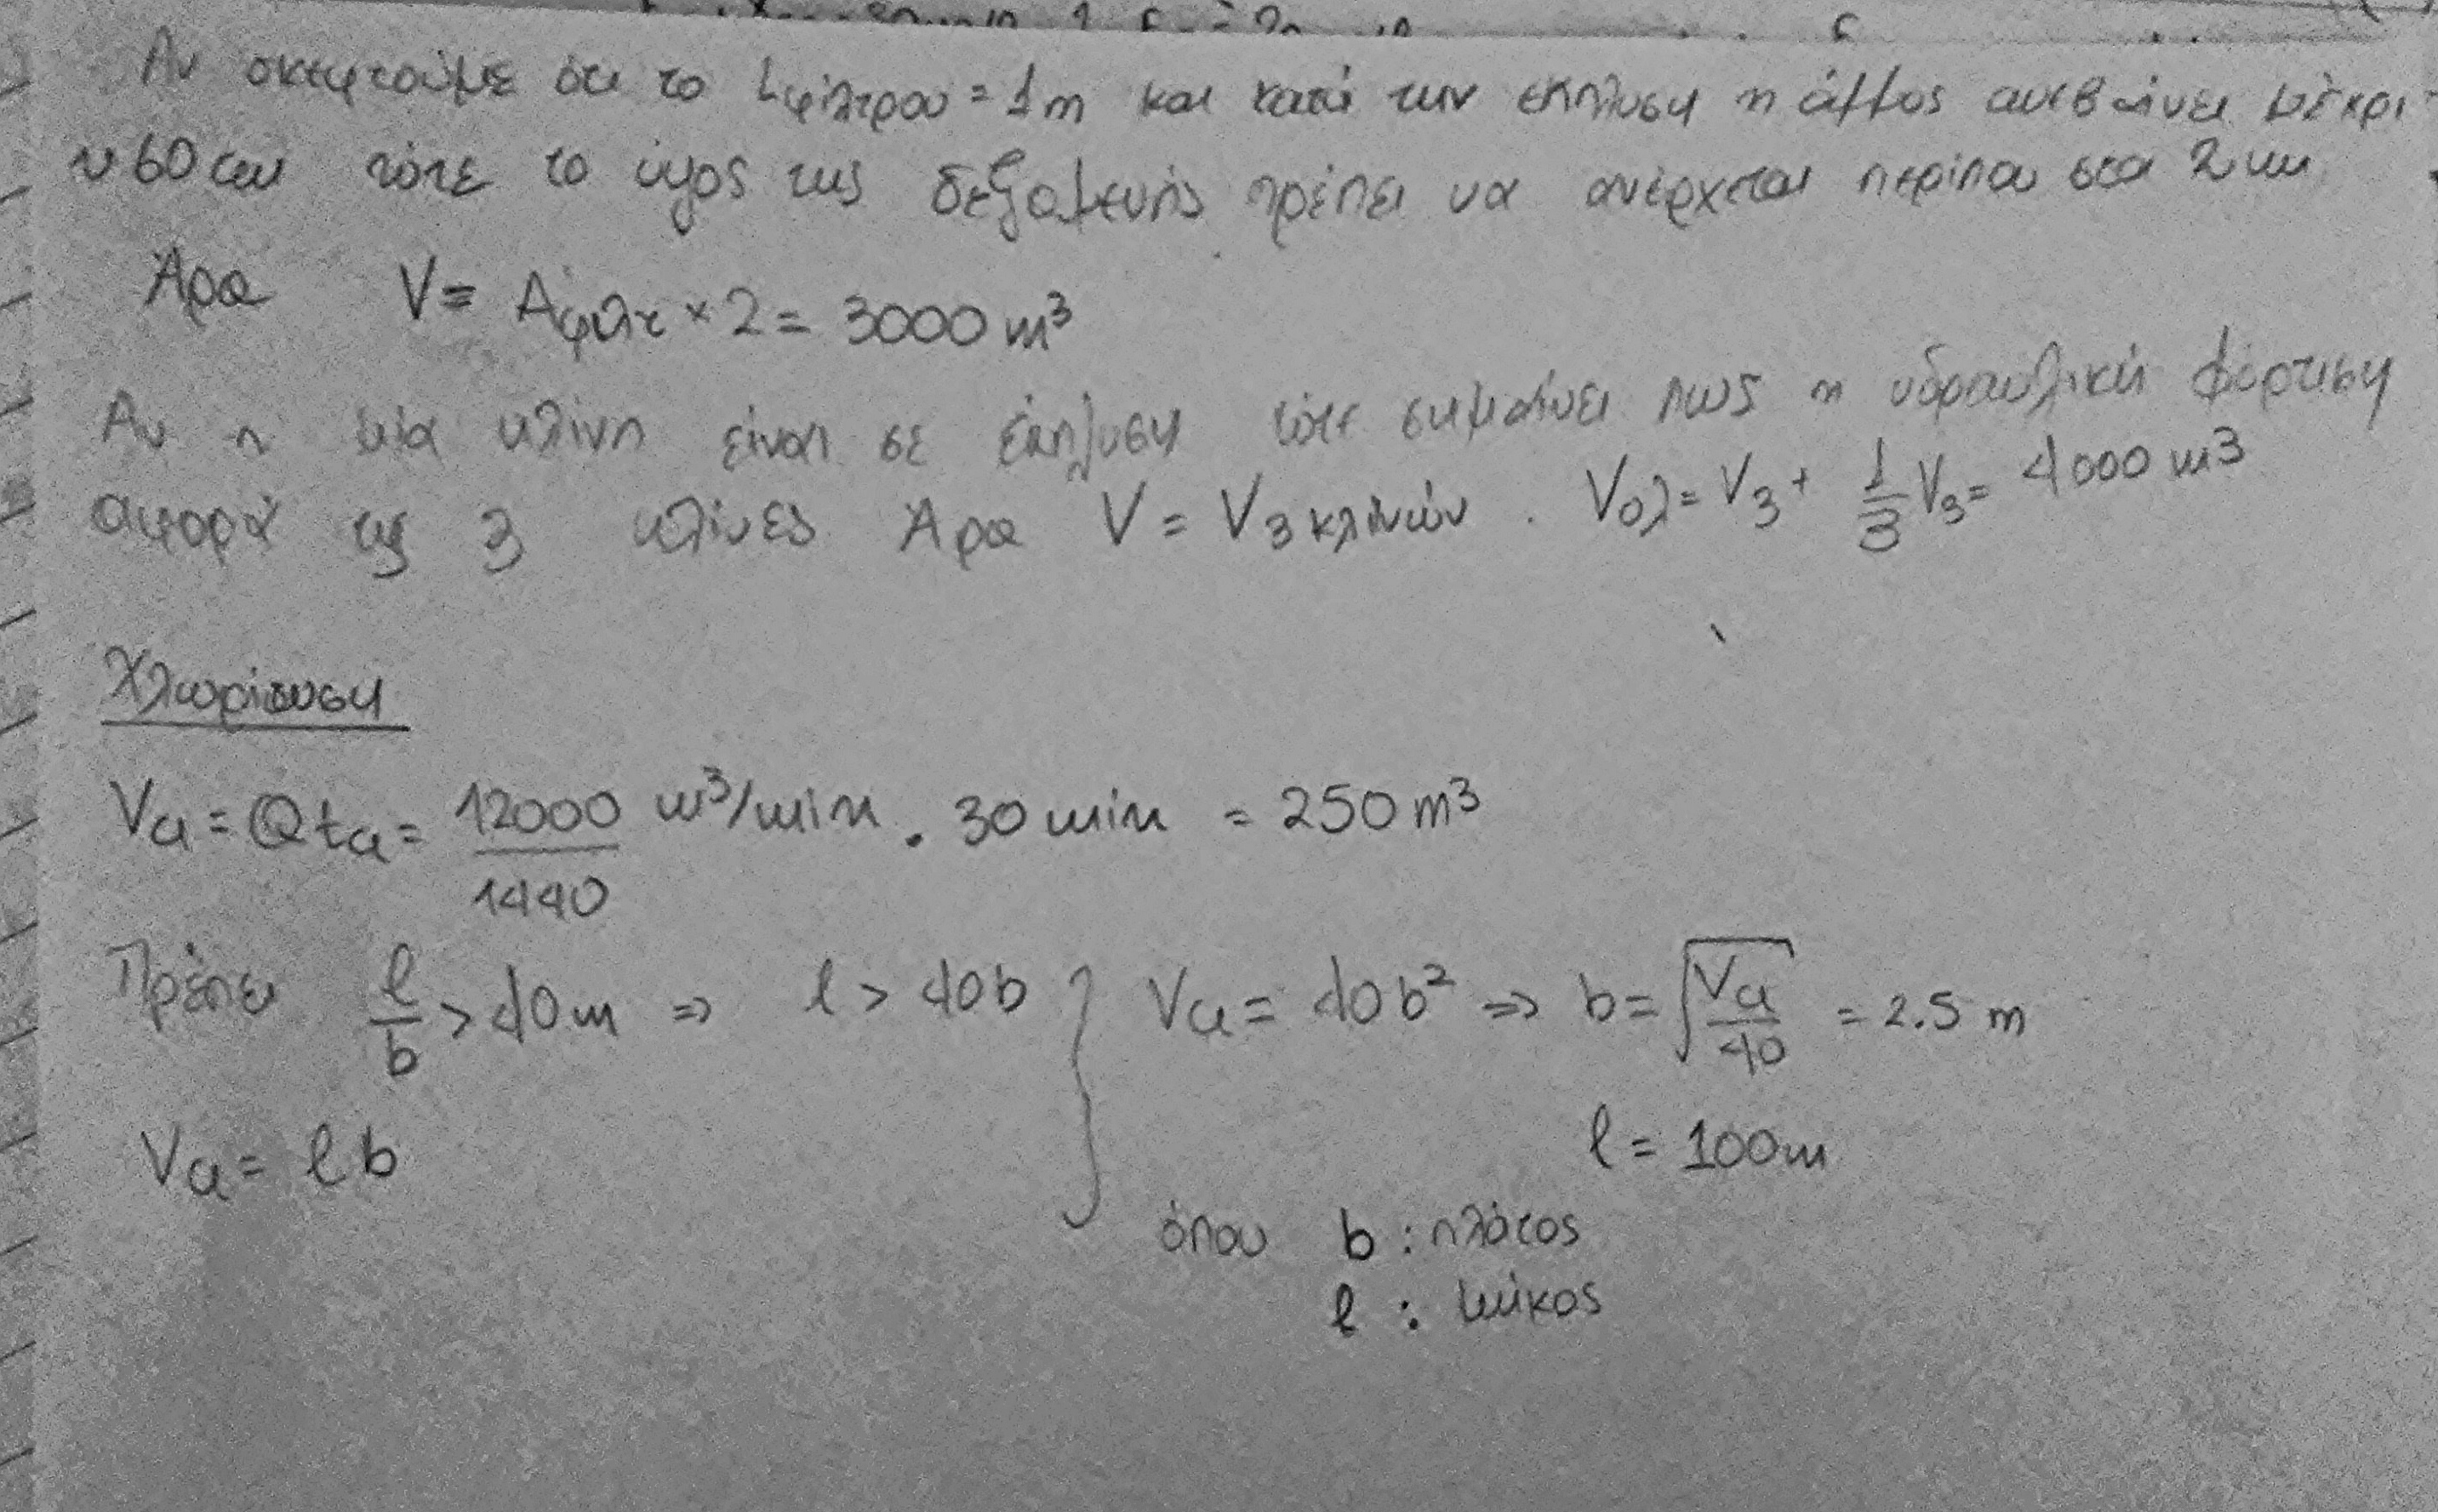 Αν σκεφτούμε ότι το Lφίλτρου = 1m και κατά την έκπλυση η άμμος ανεβαίνει μέχρι
~60cm τότε το ύψος της δεξαμενής πρέπει να ανέρχεται περίπου στα 2m
Άρα V = Aφιλτ × 2 = 3000 m³
Αν η μία κλίνη είναι σε έκπλυση τότε σημαίνει πως η υδραυλική φόρτιση
αφορά τις 3 κλίνες Άρα V = V3 κλινών . Vολ = V3 + 1/3 V3 = 4000 m³
Χλωρίωση
Va = Q ta = 12000/1440 m³/min . 30 min = 250 m³
Πρέπει l/b > 40m ⇒ l > 40b } Va = 40b² ⇒ b = √(Va/40) = 2.5 m
Va = l b
l = 100m
όπου b : πλάτος
l : μήκος